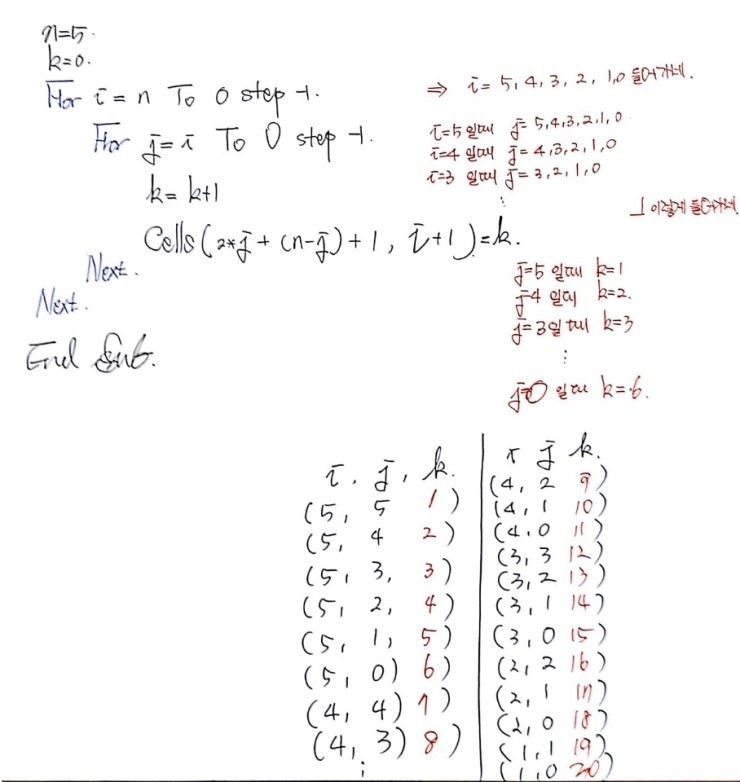 n=5.
k=0.
For i = n To 0 step -1.
For j = i To 0 step -1.
k = k+1
Cells(2*j + (n-j) + 1, i+1) = k.
Next.
Next.
End Sub.
⇒ i = 5, 4, 3, 2, 1, 0 들어가네.
i=5 일때 j= 5,4,3,2,1,0.
i=4 일때 j= 4,3,2,1,0
i=3 일때 j= 3,2,1,0
⋮
이렇게 들어가네
j=5 일때 k=1
j=4 일때 k=2.
j=3일때 k=3
⋮
j=0 일때 k=6.
i. j, k.
(5, 5 1)
(5, 4 2)
(5, 3, 3)
(5, 2, 4)
(5, 1, 5)
(5, 0) 6)
(4, 4) 7)
(4, 3) 8)
⋮
i j k.
(4, 2 9)
(4, 1 10)
(4, 0 11)
(3, 3 12)
(3, 2 13)
(3, 1 14)
(3, 0 15)
(2, 2 16)
(2, 1 17)
(2, 0 18)
(1, 1 19)
(1, 0 20)